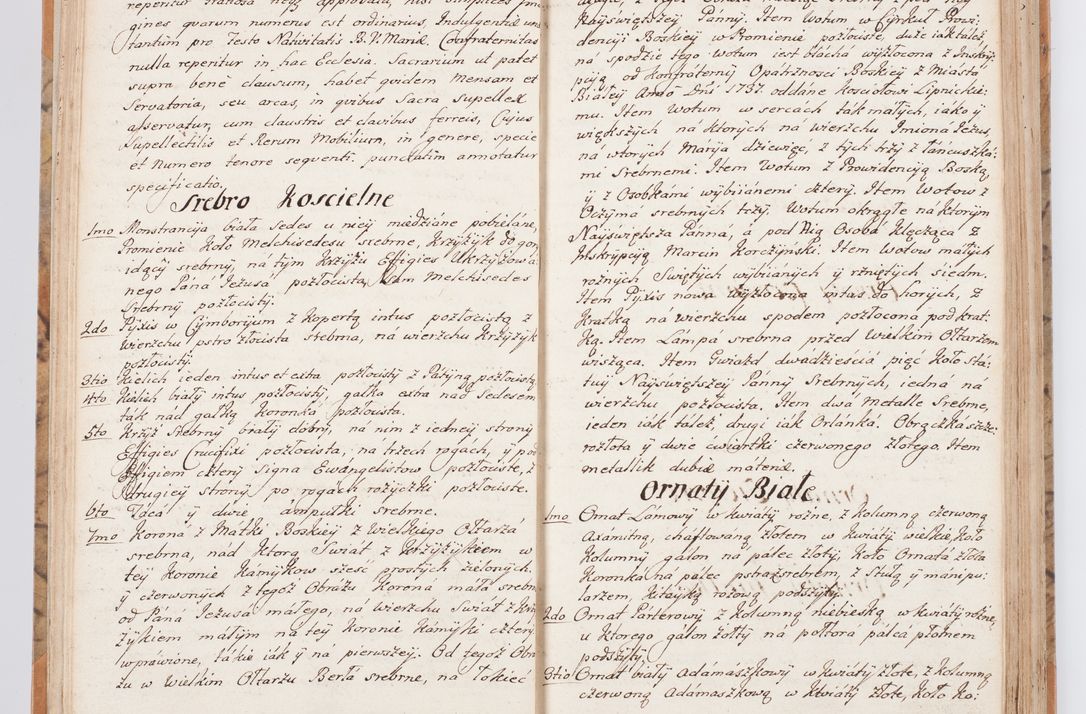 gines quarum numerus est ordinarius, Indulgentiæ un
tantum pro Festo Nativitatis B. V. Mariæ. Confraternitas
nulla reperitur in hac Ecclesia. Sacrarium ut patet
supra bene clausum, habet quidem Mensam et
Servatoria, seu arcas, in quibus Sacra Supellex
asservatur, cum claustris et clavibus ferreis, Cujus
Supellectilis et Rerum Mobilium, in genere, specie
et Numero tenore sequenti punctatim annotatur
specificatio.
Srebro Koscielne
1mo Monstrancija biała Sedes u niey miedziáne pobieláne,
Promienie Koło Melchisedesu srebrne, Krzyżyk do gory
idący srebrny, ná tym Krzyżu Effigies Ukrzyżowa
nego Páná Jezusá pozłocista, Sam Melchisedes
Srebrny pozłocistÿ.
2do Pÿxis w Cÿmborÿum z Kopertą intus pozłocistą z
wierzchu pstro złocista srebrna, ná wierzchu Krzyżyk
pozłocistÿ.
3tio Kielich ieden intus et extra pozłocistÿ z Pátÿną pozłocistą
4to Kielich białÿ intus pozłocistÿ, gałka extra nad Sedesem
ták nád gałką Koronka pozłocista.
5to Krzÿż Srebrnÿ białÿ dobrÿ, ná nim z iedneÿ stronÿ
Effigies Crucifixi pozłocista, ná trzech rogách, ÿ pod
Effigiem czterÿ Signa Ewangelistow pozłociste, z
drugieÿ stronÿ po rogach rożÿczki pozłociste.
6to Tácá ÿ dwie ampułki srebrne.
7mo Korona z Mátki Boskieÿ z Wielkiego Ołtarzá
srebrna, nád Ktorą Swiát z Krzÿżÿkiem w
teÿ Koronie Kámÿkow sześć prostÿch zielonÿch
ÿ czerwonÿch z tegoż Obrázu Koroná máłá srebrn
od Páná Jezusá máłego, ná wierzchu Swiát z Krzÿ
żÿkiem máłÿm ná teÿ Koronie Kamÿski czterÿ
wpráwione, tákie iák ÿ ná pierwszeÿ. Od tegoż Obrá
zu w Wielkim Ołtarzu Berłá srebrne, ná łokieć
Nayświętszeÿ Pannÿ. Item Wotum w Cÿrkuł Prowi-
dencÿi Boskieÿ w Promienie pozłociste, duże iák talerz
ná spodzie tego wotum iest blachá wÿzłocona z Inskrÿ-
pcÿą od Konfráternÿ Opátrznosci Boskieÿ z Miástá
Białeÿ Anno Dni 1737. oddáne Kosciołowi Lipnickie:
mu. Item Wotum w sercách ták máłÿch, iáko ÿ
większÿch ná Ktorÿch ná wierzchu Imiona Jezus,
ná wtorÿch Marÿa dziewięć, z tÿch trzÿ z Łáncuszká:
mi Srebrnemi. Item Wotum z Prowidencÿą Boską
ÿ z Osobkámi wÿbiiánemi czterÿ. Item Wotow z
Oczÿmá srebrnÿch trzÿ. Wotum okrągłe ná Ktorÿm
Naÿświętszá Pánná, á pod Nią Osoba Klęcząca z
Inskrÿpcÿą Marcin Korczÿnski. Item Wotow máłÿch
rożnÿch Swiętÿch wÿbiianÿch ÿ rżniętÿch siedm.
Item Pÿxis nowa wÿzłocona intus do Chorÿch, z
Kratką ná wierzchu spodem pozłocona pod krat:
Ką. Item Lampa srebrna przed Wielkim Ołtarzem
wisząca. Item Gwiazd dwádzieściá pięć Koło Stá:
tuÿ Naÿświętszeÿ Pánnÿ Srebrnÿch, iedná ná
wierzchu pozłocista. Item dwá Metalle Srebrne,
ieden iák talerz, drugi iák Orlánká. Obrączka szcze:
rozłota ÿ dwie cwiártki czerwonego złotego. Item
metallik dubiæ máteriæ.
Ornatÿ Białe
1mo Ornat Lámowÿ w kwiatÿ rożne, z Kolumną czerwoną
Axámitną, cháftowaną złotem w kwiátÿ wielkie, Koło
Kolumnÿ galon ná pálec złotÿ, Koło Ornatá złota
Koronka ná pálec pstra z srebrem, z Stułą ÿ mánipu:
larzem, kitáÿką rożową podszÿtÿ.
2do Ornat Párterowÿ z Kolumną niebieską w kwiatÿ rożne,
u Ktorego galon żółtÿ ná półtorá pálcá płotnem
podszÿtÿ.
3tio Ornat białÿ Adámaszkowÿ w kwiátÿ złote, z Kolumną
czerwoną Adámaszkową w Kwiátÿ złote, Koło Ko: